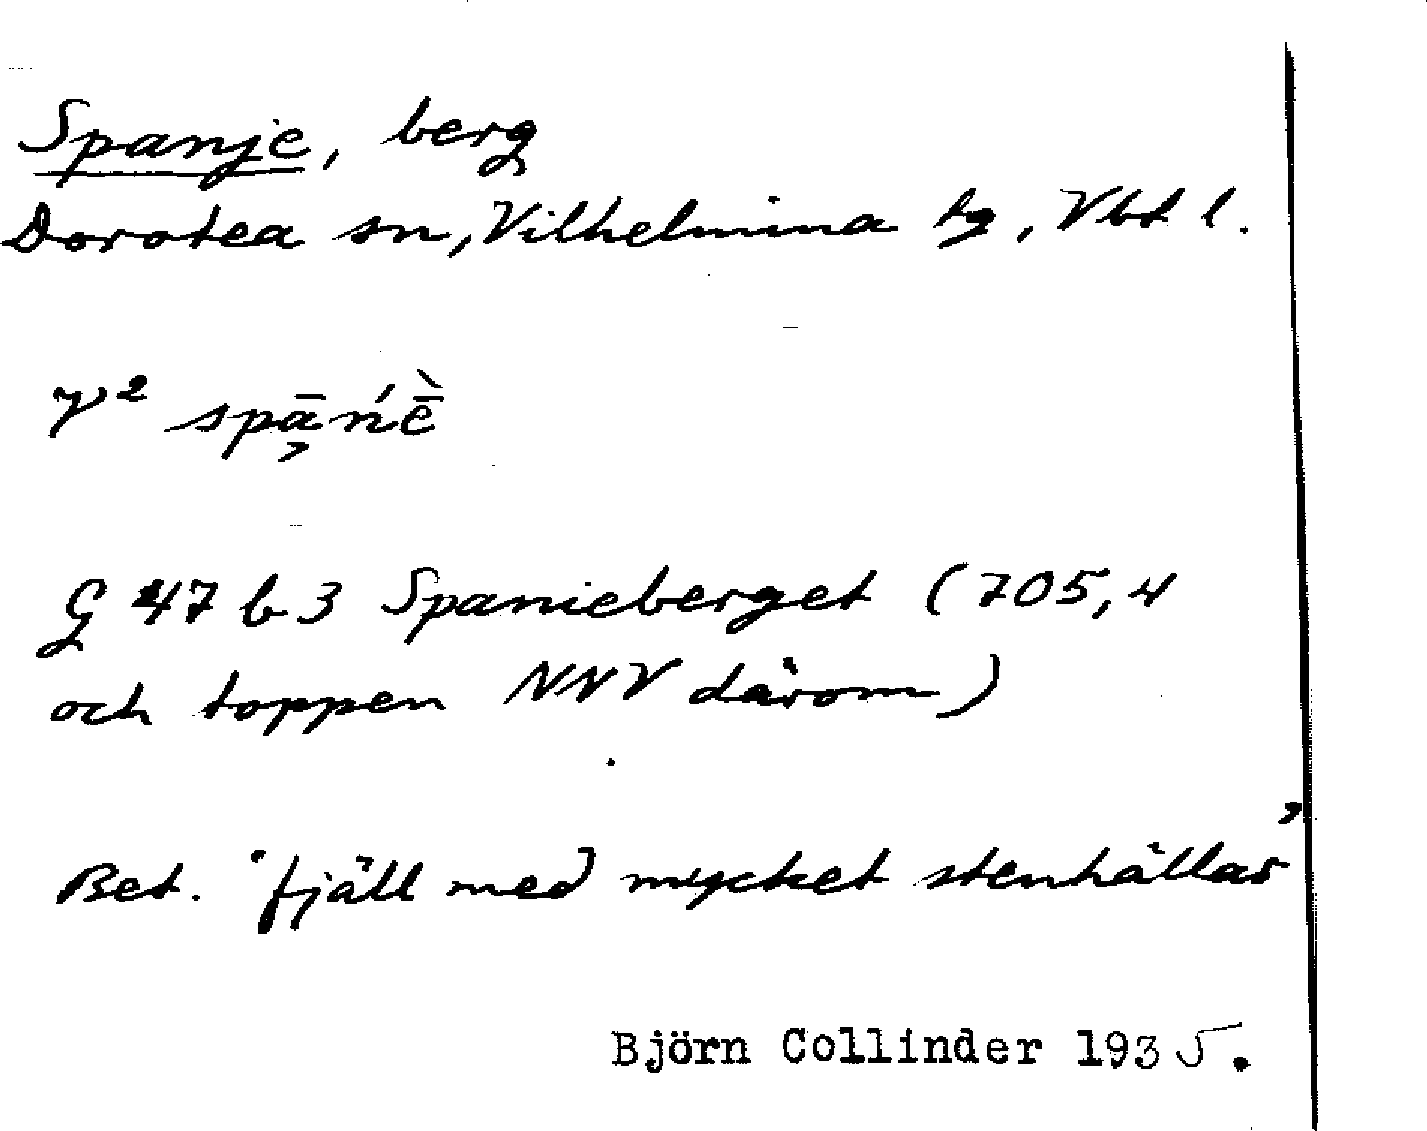 Spanje, berg
Dorotea sn, Vilhelmina tg, Vbt l.
V² spā̦ńḕ
G 47 b 3 Spanieberget (705,4
och toppen NNV därom)
Bet. 'fjäll med mycket stenhällar'
Björn Collinder 1935.